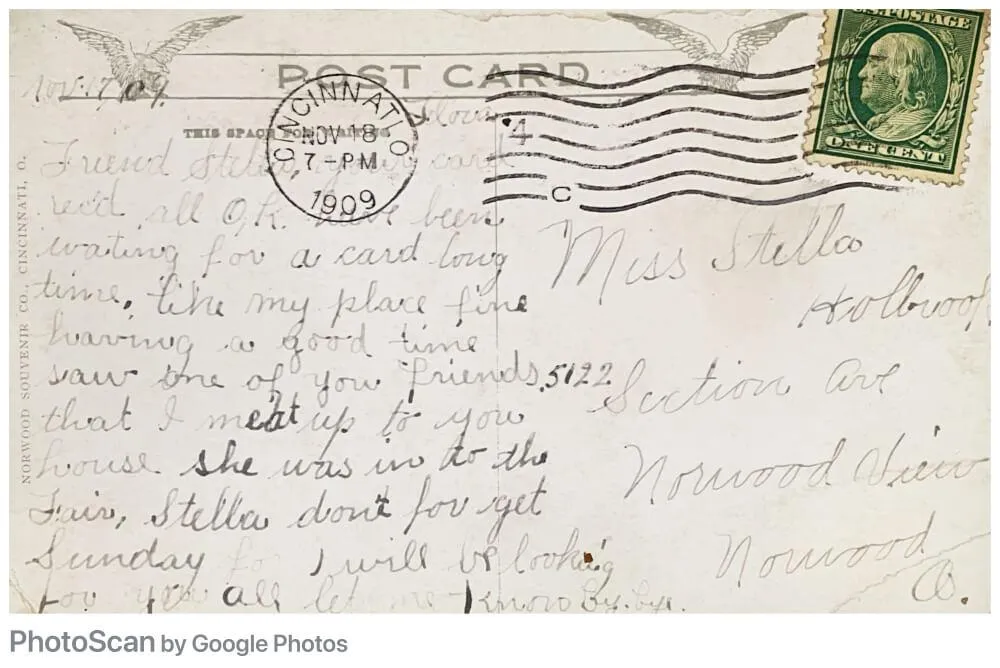 U.S. POSTAGE
ONE CENT
POST CARD
Nov. 17, 09.
CINCINNATI, O.
NOV 18
7-PM
1909
4
C
THIS SPACE FOR WRITING
Friend Stella, your card
rec'd all O.K. have been
waiting for a card long
time, like my place fine
having a good time
saw one of you friends
that I meat up to you
house she was in to the
Fair, Stella don't for get
Sunday for I will be looking
for you all let me know by. bye.
Miss Stella
Holbrook
5122 Section Ave
Norwood View
Norwood
O.
NORWOOD SOUVENIR CO., CINCINNATI, O.
PhotoScan by Google Photos